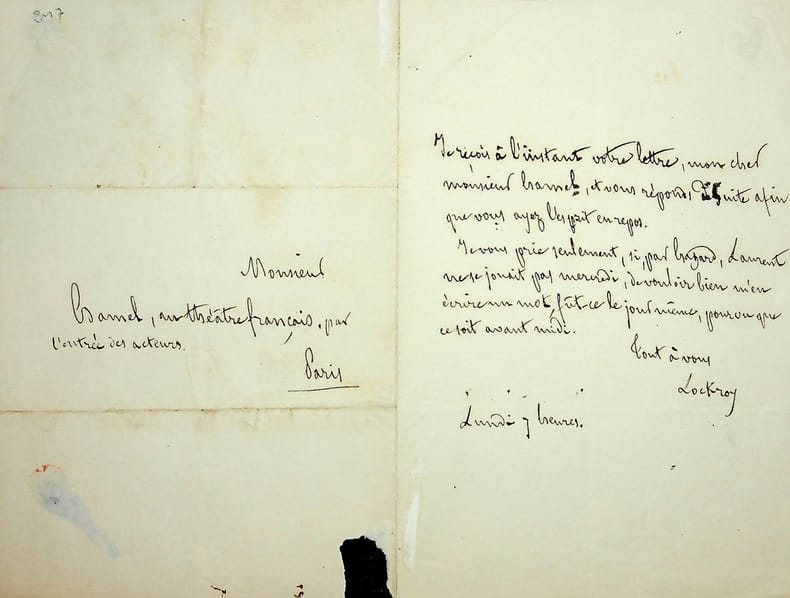 217
Monsieur
hamel, au théâtre français, par
l'entrée des acteurs.
Paris
Je reçois à l'instant votre lettre, mon cher
monsieur hamel, et vous réponds suite afin
que vous ayez l'esprit en repos.
Je vous prie seulement, si, par hazard, Laurent
ne se jouait pas mercredi, de vouloir bien m'en
écrire un mot, fût-ce le jour même, pourvu que
ce soit avant midi.
Tout à vous
Lockroy
Lundi 7 heures.